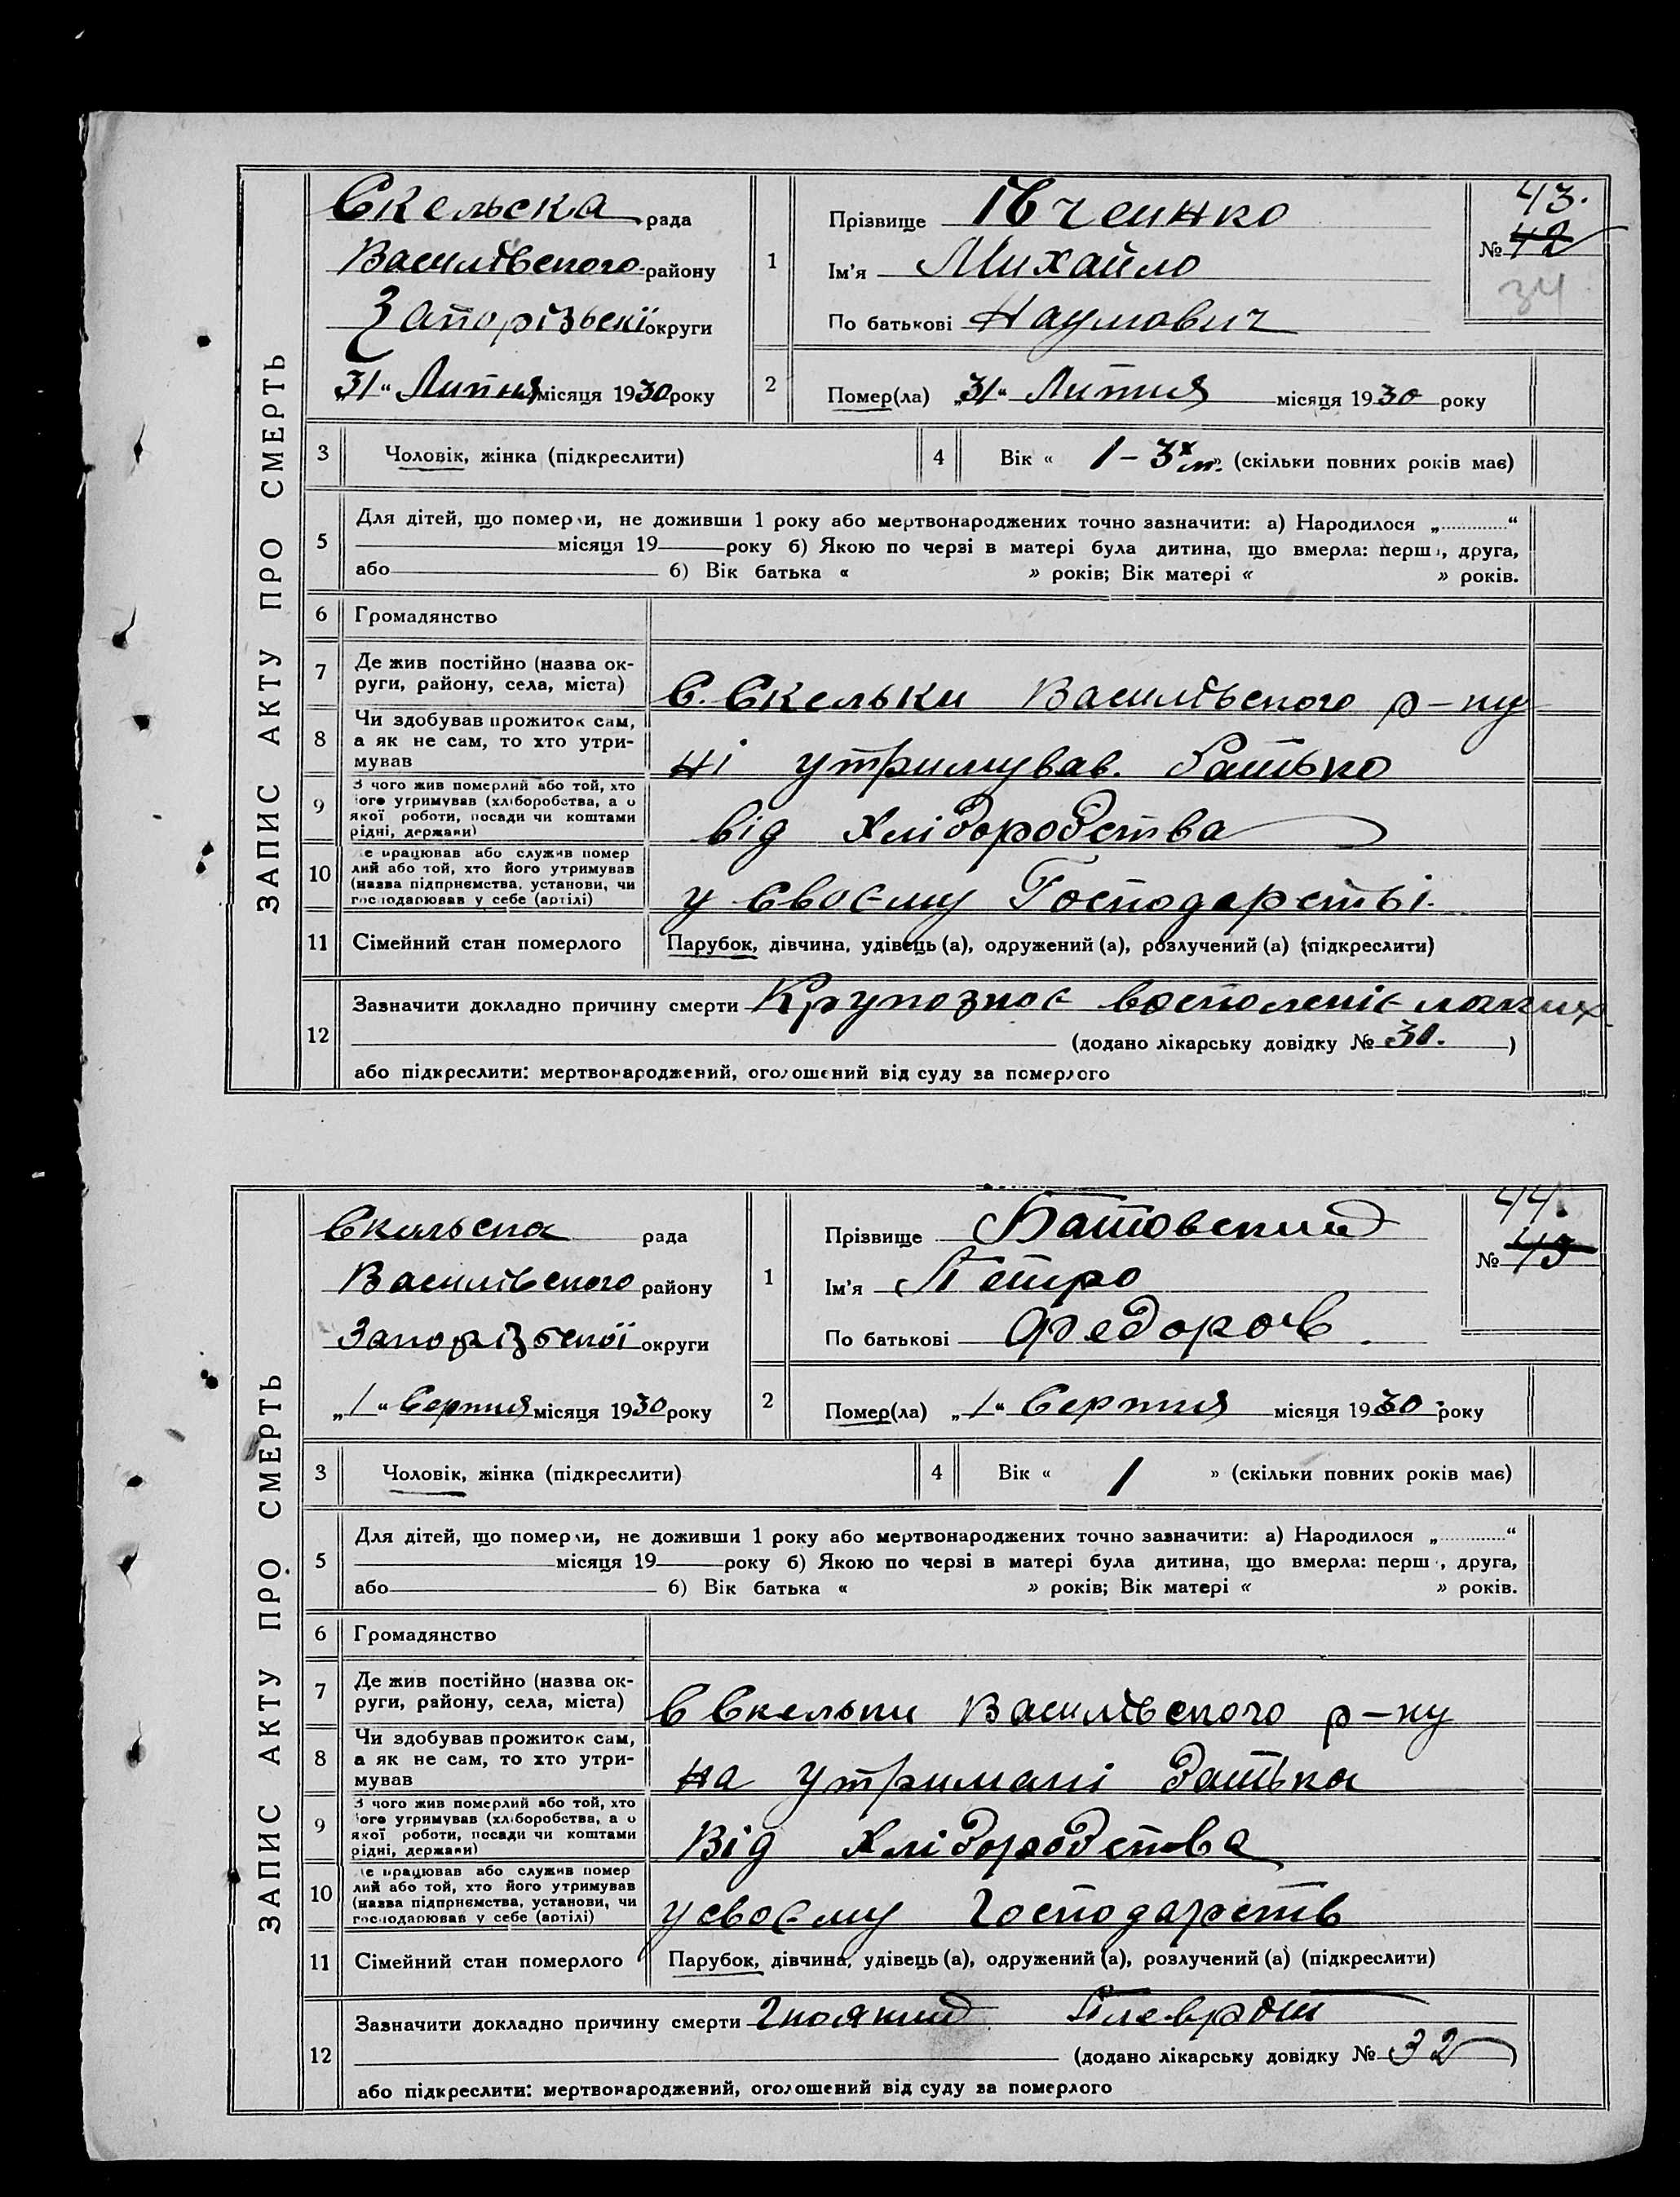 ЗАПИС АКТУ ПРО СМЕРТЬ
Скельска рада
Василівського району
Запорізьскі округи
„31“ Липня місяця 1930 року
1
Прізвище Івченко
Ім'я Михайло
По батькові Наумович
43.
№ 42
34
2
Помер(ла) „31“ Липня місяця 1930 року
3 Чоловік, жінка (підкреслити)
4 Вік « 1 – 3х м. » (скільки повних років має)
5 Для дітей, що померли, не доживши 1 року або мертвонароджених точно зазначити: а) Народилося „ “
місяця 19 року б) Якою по черзі в матері була дитина, що вмерла: перша, друга,
або б) Вік батька « » років; Вік матері « » років.
6 Громадянство
7 Де жив постійно (назва ок-
руги, району, села, міста)
С. Скельки Василівського р-ну
8 Чи здобував прожиток сам,
а як не сам, то хто утри-
мував
ні утримував. батько
9 З чого жив померлий або той, хто
його утримував (хліборобства, а о
якої роботи, посади чи коштами
рідні, держави)
від хліборобства
10 Де працював або служив помер
лий або той, хто його утримував
(назва підприємства, установи, чи
господарював у себе (артілі)
у своєму Господарстві.
11 Сімейний стан померлого Парубок, дівчина, удівець (а), одружений (а), розлучений (а) (підкреслити)
12 Зазначити докладно причину смерти Крупозноє восполеніє
(додано лікарську довідку № 31. )
або підкреслити: мертвонароджений, оголошений від суду за померлого
ЗАПИС АКТУ ПРО СМЕРТЬ
Скельска рада
Василівського району
Запорізської округи
„1“ Серпня місяця 1930 року
1
Прізвище Батовский
Ім'я Петро
По батькові Федоров
44.
№ 43
2
Помер(ла) „1“ Серпня місяця 1930 року
3 Чоловік, жінка (підкреслити)
4 Вік « 1 » (скільки повних років має)
5 Для дітей, що померли, не доживши 1 року або мертвонароджених точно зазначити: а) Народилося „ “
місяця 19 року б) Якою по черзі в матері була дитина, що вмерла: перш , друга,
або б) Вік батька « » років; Вік матері « » років.
6 Громадянство
7 Де жив постійно (назва ок-
руги, району, села, міста)
С Скельки Василівського р-ну
8 Чи здобував прожиток сам,
а як не сам, то хто утри-
мував
на утримані батька
9 З чого жив померлий або той, хто
його утримував (хліборобства, а о
якої роботи, посади чи коштами
рідні, держави)
Від хліборобства
10 Де працював або служив помер
лий або той, хто його утримував
(назва підприємства, установи, чи
господарював у себе (артілі)
у своєму Господарств
11 Сімейний стан померлого Парубок, дівчина, удівець (а), одружений (а), розлучений (а) (підкреслити)
12 Зазначити докладно причину смерти Плеврит
(додано лікарську довідку № 32 )
або підкреслити: мертвонароджений, оголошений від суду за померлого